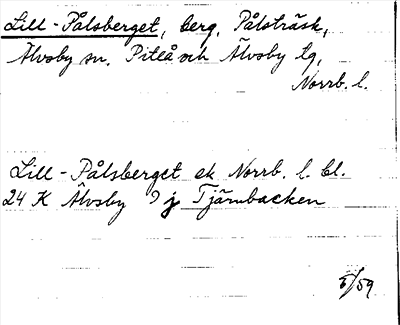 Lill-Pålsberget, berg, Pålsträsk,
Älvsby sn. Piteå och Älvsby tg,
Norrb. l.
Lill-Pålsberget ek Norrb. l. bl.
24 K Älvsby 9 j Tjärnbacken
5/59